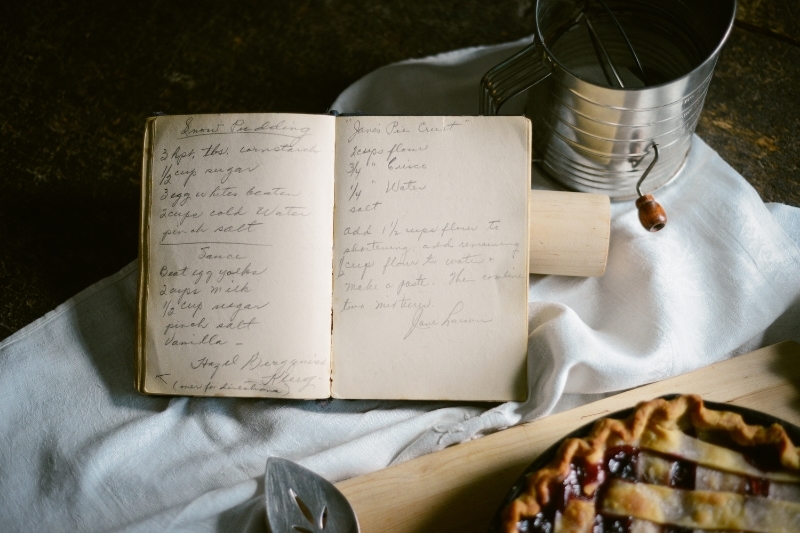 Snow Pudding
3 hpt. tbs. cornstarch
1/2 cup sugar
3 egg whites beaten
2 cups cold Water
pinch salt
Sauce
Beat egg yolks
2 cups milk
1/2 cup sugar
pinch salt
Vanilla –
Hazel Bergquist
(over for directions)
"Jane's Pie Crust"
2 cups flour
3/4 " Crisco
1/4 " Water
salt
Add 1 1/2 cups flour to
shortening, add remaining
cup flour to water &
make a paste. Then combine
two mixtures
Jane Larson